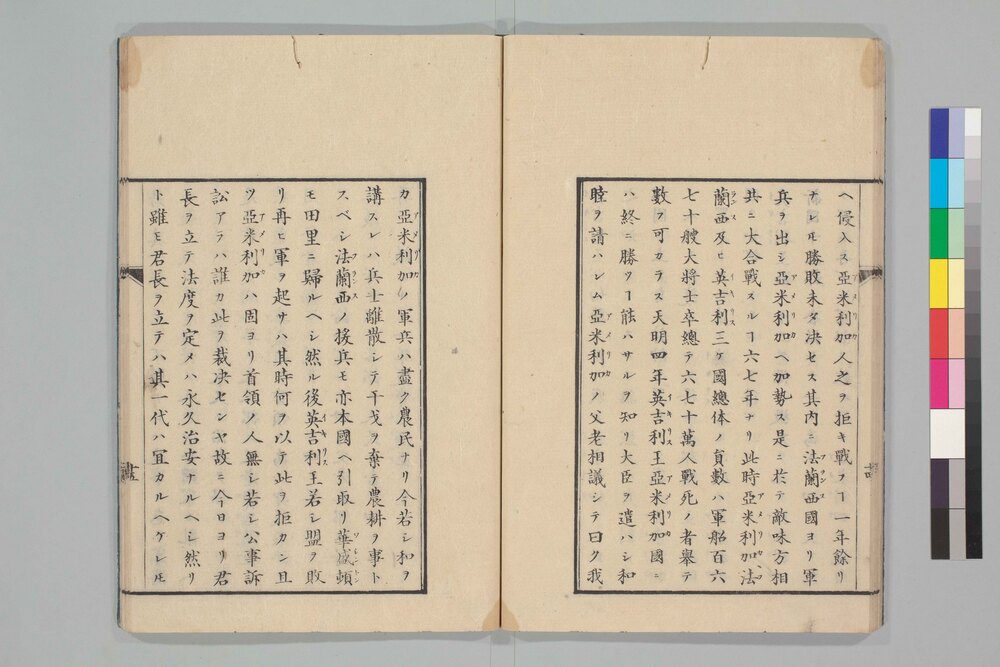 ヘ侵入ス亞米利加人之ヲ拒キ戰フヿ一年餘リ
ナレ𪜈勝敗未タ決セス其内ニ法蘭西國ヨリ軍
兵ヲ出シ亞米利加ヘ加勢ス是ニ於テ敵味方相
共ニ大合戰スルヿ六七年ナリ此時亞米利加法
蘭西及ヒ英吉利三ケ國總体ノ員數ハ軍船百六
七十艘大將士卒總テ六七十萬人戰死ノ者舉テ
數フ可カラス天明四年英吉利王亞米利加國ニ
ハ終ニ勝ツヿ能ハサルヲ知リ大臣ヲ遣ハシ和
睦ヲ請ハシム亞米利加ノ父老相議シテ曰ク我
カ亞米利加ノ軍兵ハ盡ク農民ナリ今若シ和ヲ
講スレハ兵士離散シテ干戈ヲ棄テ農耕ヲ事ト
スベシ法蘭西ノ援兵モ亦本國ヘ引取リ華盛頓
モ田里ニ歸ルヘシ然ル後英吉利王若シ盟ヲ敗
リ再ヒ軍ヲ起サハ其時何ヲ以テ此ヲ拒カン且
ツ亞米利加ハ固ヨリ首領ノ人無シ若シ公事訴
訟アラハ誰カ此ヲ裁決センヤ故ニ今日ヨリ君
長ヲ立テ法度ヲ定メハ永久治安ナルヘシ然リ
ト雖モ君長ヲ立テハ其一代ハ冝カルヘケレ𪜈